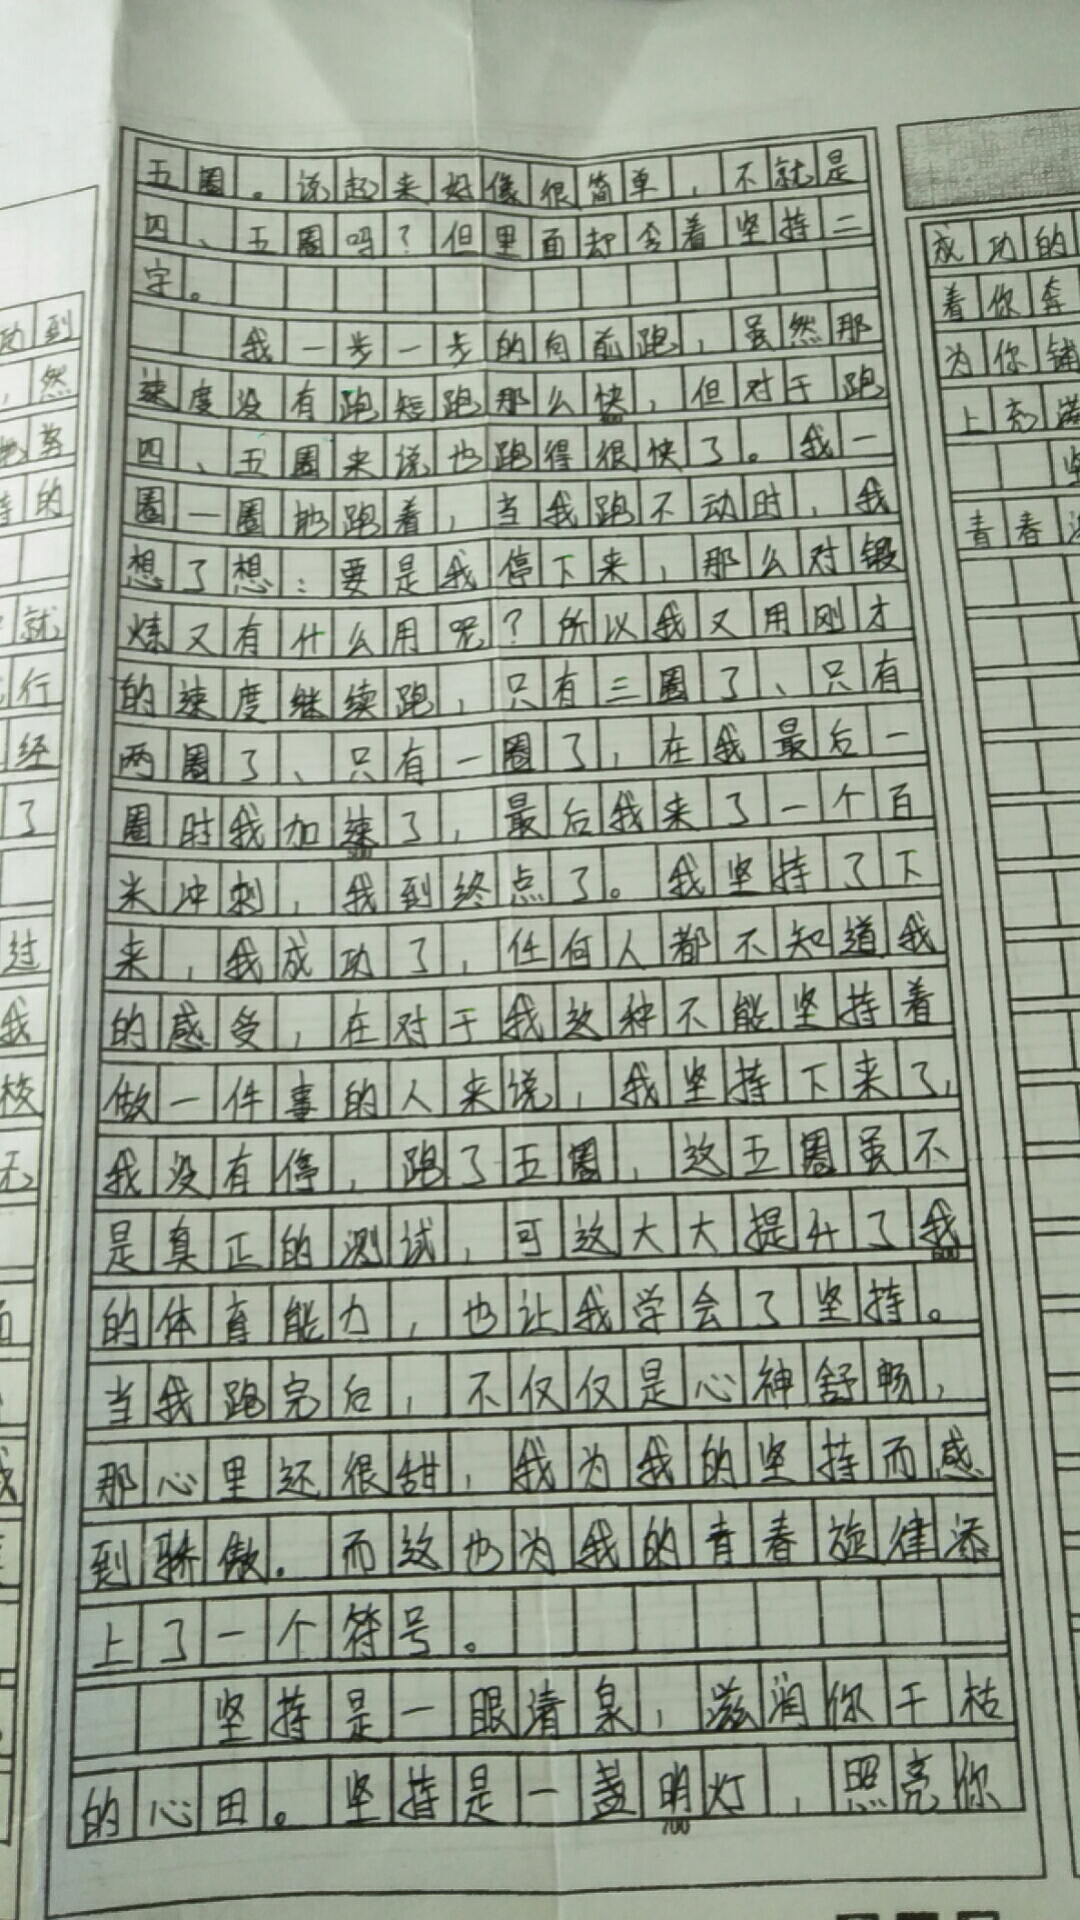 五圈。说起来好像很简单，不就是
四、五圈吗？但里面却含着坚持二
字。
我一步一步的向前跑，虽然那
速度没有跑短跑那么快，但对于跑
四、五圈来说也跑得很快了。我一
圈一圈地跑着，当我跑不动时，我
想了想：要是我停下来，那么对锻
炼又有什么用呢？所以我又用刚才
的速度继续跑，只有三圈了、只有
两圈了、只有一圈了，在我最后一
圈时我加速了，最后我来了一个百
米冲刺，我到终点了。我坚持了下
来，我成功了，任何人都不知道我
的感受，在对于我这种不能坚持着
做一件事的人来说，我坚持下来了，
我没有停，跑了五圈，这五圈虽不
是真正的测试，可这大大提升了我
600
的体育能力，也让我学会了坚持。
当我跑完后，不仅仅是心神舒畅，
那心里还很甜，我为我的坚持而感
到骄傲。而这也为我的青春旋律添
上了一个符号。
坚持是一眼清泉，滋润你干枯
的心田。坚持是一盏明灯，照亮你
700
成功的
着你奔
为你铺
上充满
坚
青春
到
，然
持的
就
行
经
了
过
我
校